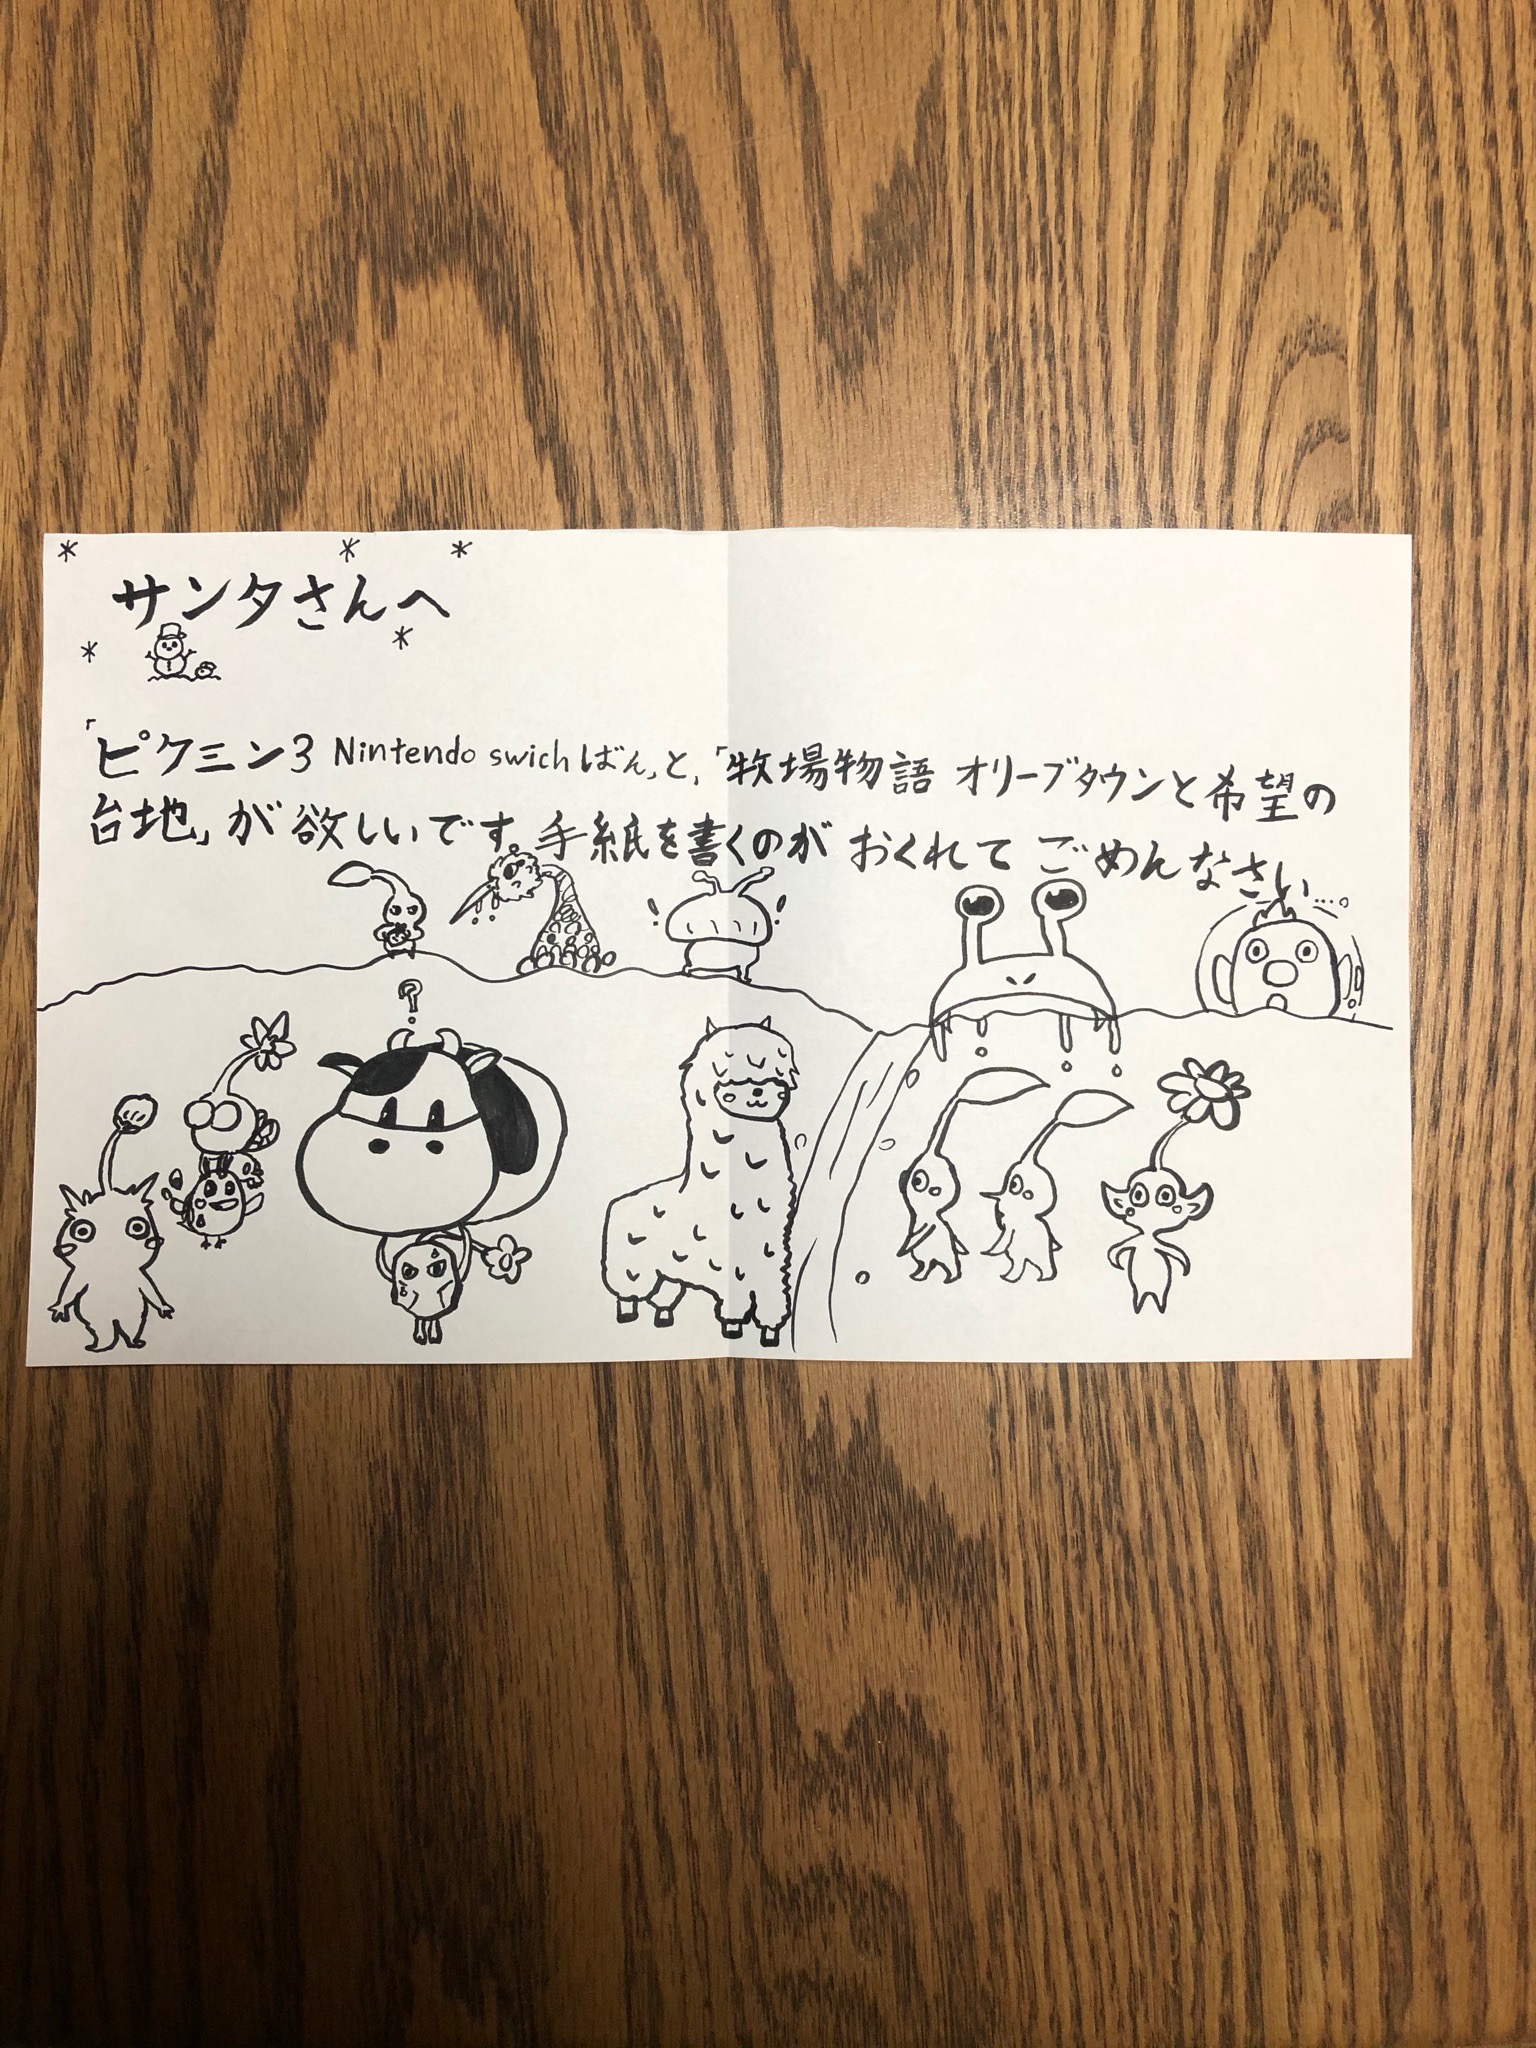 サンタさんへ
「ピクミン3 Nintendo swichばん」と、「牧場物語 オリーブタウンと希望の
台地」が欲しいです。手紙を書くのが おくれて ごめんなさい...。
?
! !